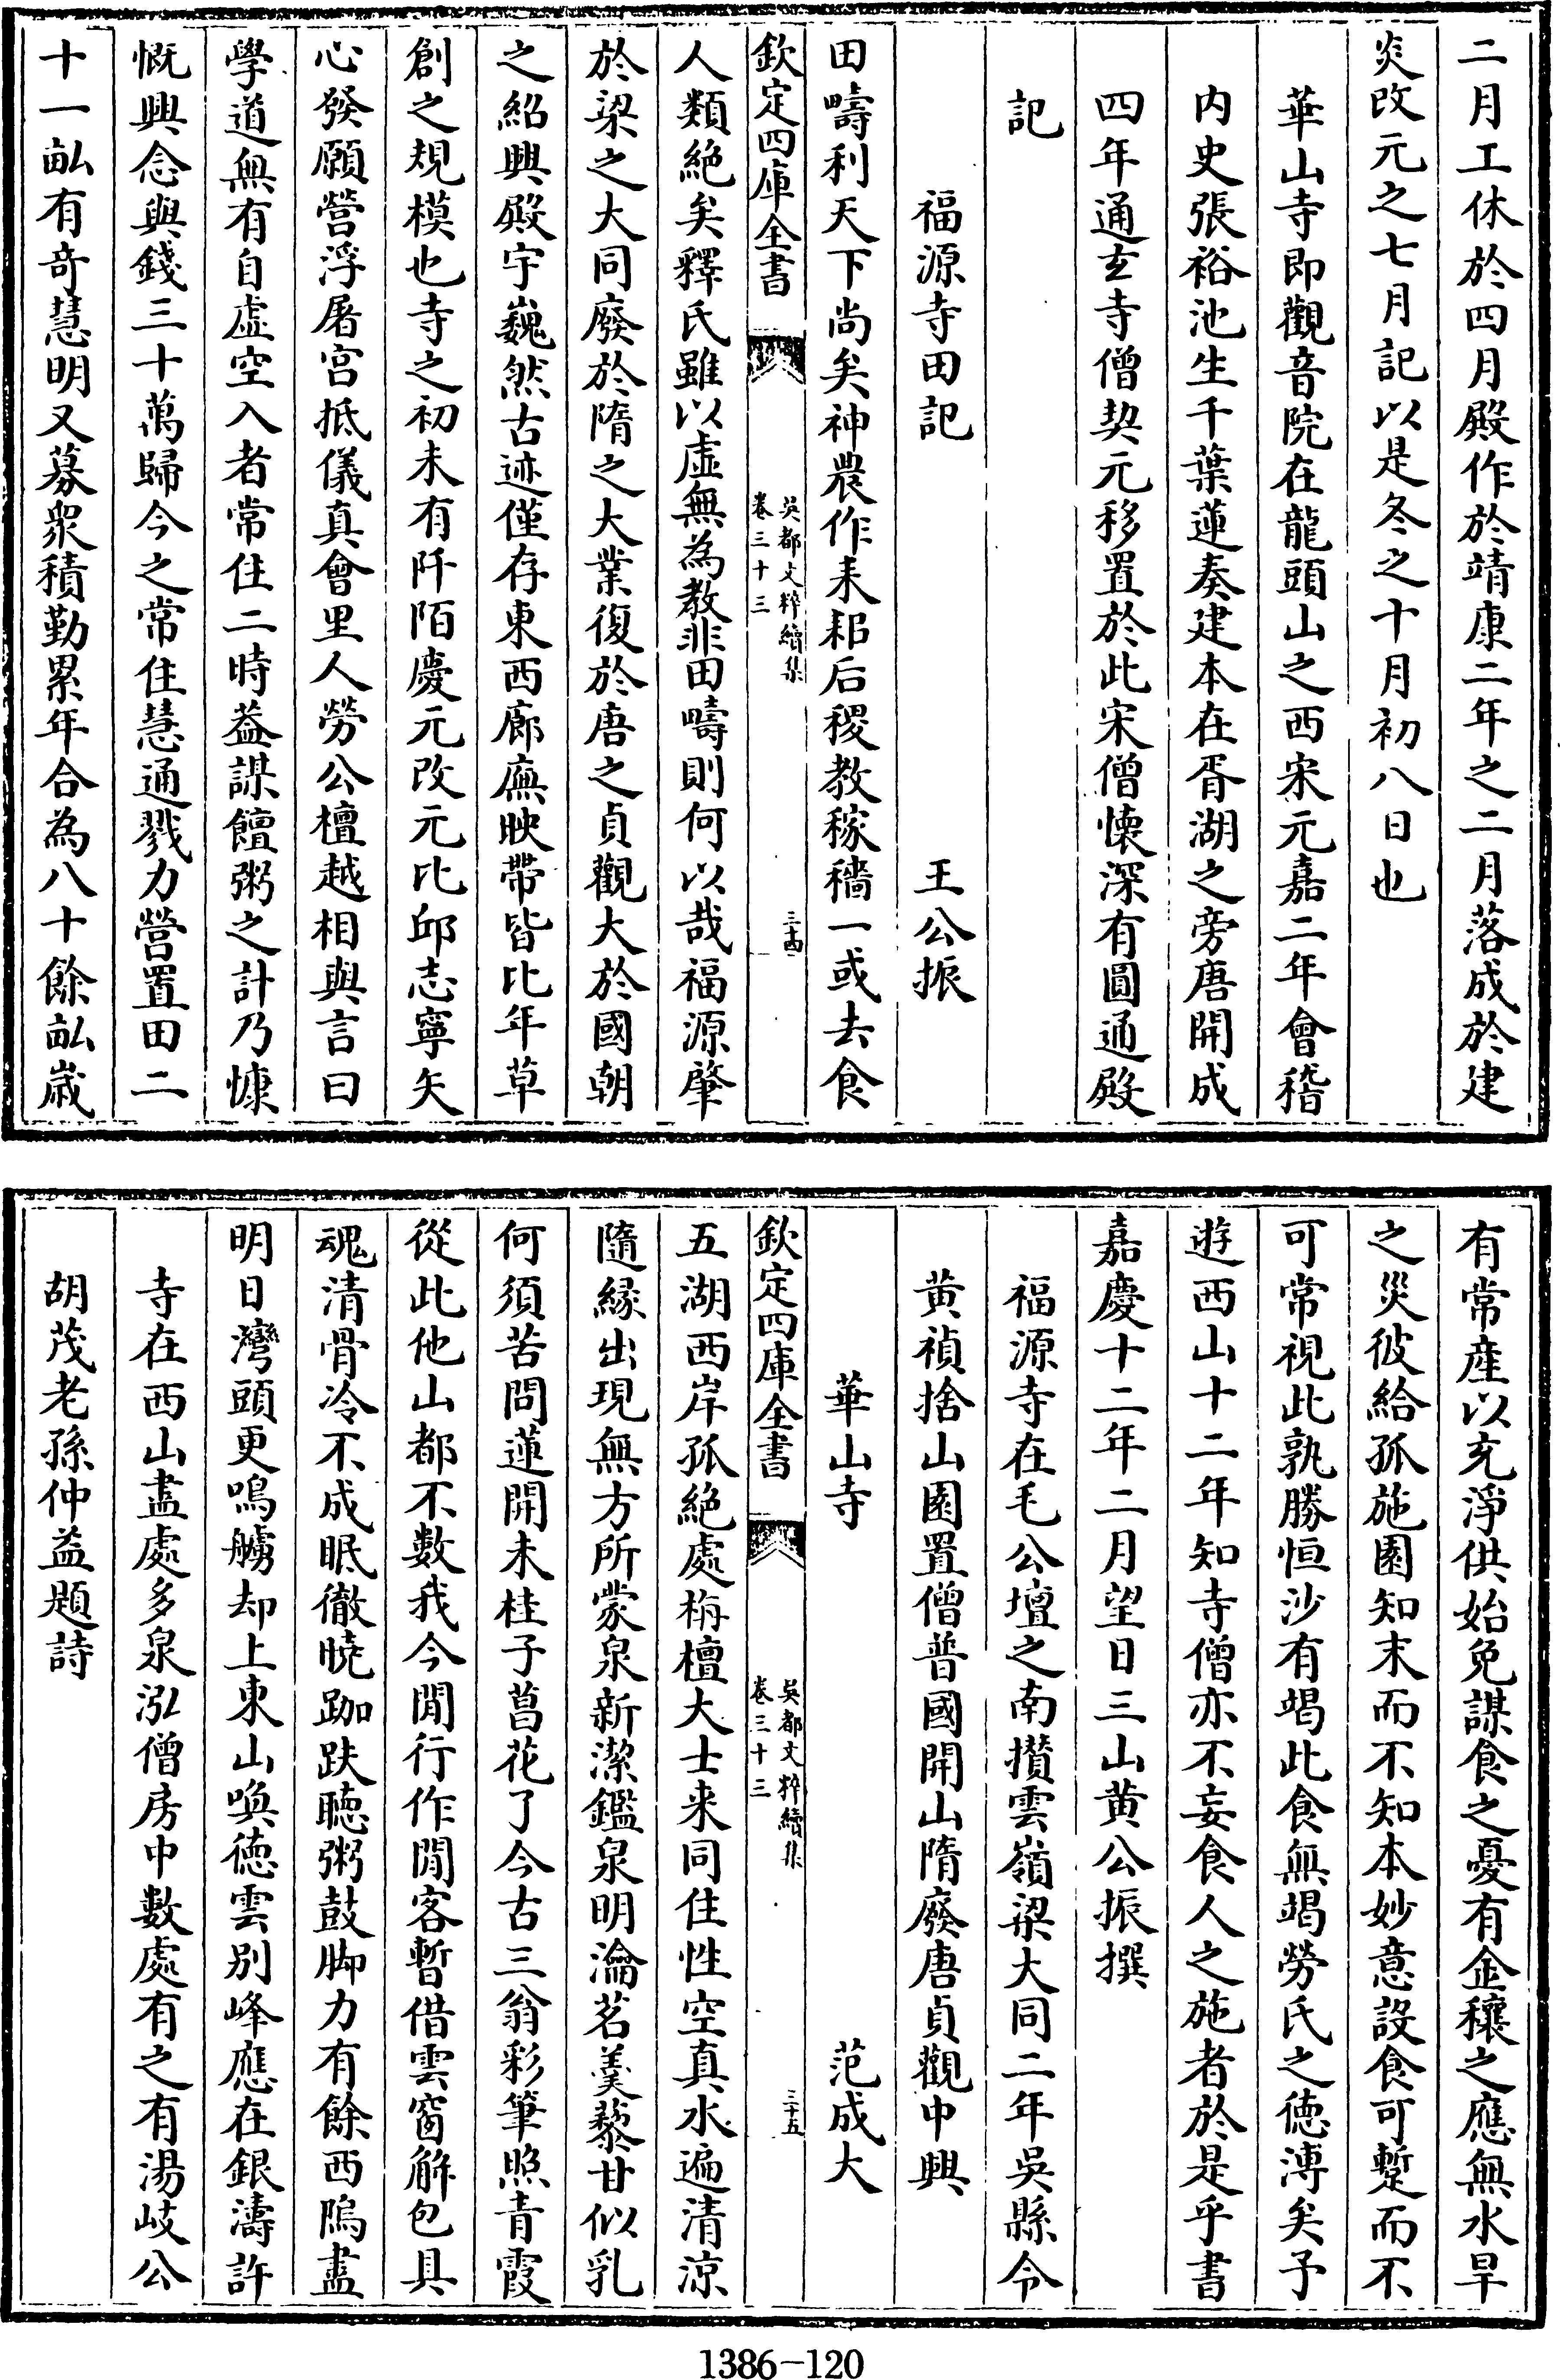 二月工休於四月殿作於靖康二年之二月落成於建
炎改元之七月記以是冬之十月初八日也
華山寺即觀音院在龍頭山之西宋元嘉二年會稽
内史張裕池生千葉蓮奏建本在胥湖之旁唐開成
四年通玄寺僧契元移置於此宋僧懐深有圓通殿
記
福源寺田記　王公振
田疇利天下尚矣神農作耒耜后稷教稼穡一或去食
欽定四庫全書
吳都文粹續集
卷三十三
三十四
人類絶矣釋氏雖以虚無為教非田疇則何以哉福源肇
於梁之大同廢於隋之大業復於唐之貞觀大於國朝
之紹興殿宇巍然古迹僅存東西廊廡映帶皆比年草
創之規模也寺之初未有阡陌慶元改元比邱志寧矢
心發願營浮屠宫抵儀真會里人勞公檀越相與言曰
學道無有自虚空入者常住二時葢謀饘粥之計乃慷
慨興念與錢三十萬歸今之常住慧通戮力營置田二
十一畝有奇慧明又募衆積勤累年合為八十餘畝歳
有常産以充淨供始免謀食之憂有金穰之應無水旱
之災彼給孤施園知末而不知本妙意設食可蹔而不
可常視此孰勝恒沙有竭此食無竭勞氏之徳溥矣予
遊西山十二年知寺僧亦不妄食人之施者於是乎書
嘉慶十二年二月望日三山黄公振撰
福源寺在毛公壇之南攢雲嶺梁大同二年吳縣令
黄禎捨山園置僧普國開山隋廢唐貞觀中興
華山寺　范成大
欽定四庫全書
吳都文粹續集
卷三十三
三十五
五湖西岸孤絶處栴檀大士来同住性空真水遍清涼
隨縁出現無方所蒙泉新潔鑑泉明瀹茗羮藜甘似乳
何須苦問蓮開未桂子菖花了今古三翁彩筆照青霞
從此他山都不數我今閒行作閒客暫借雲窗解包具
魂清骨冷不成眠徹曉跏趺聽粥鼓脚力有餘西隖盡
明日灣頭更鳴艣却上東山喚徳雲别峰應在銀濤許
寺在西山盡處多泉泓僧房中數處有之有湯岐公
胡茂老孫仲益題詩
1386-120